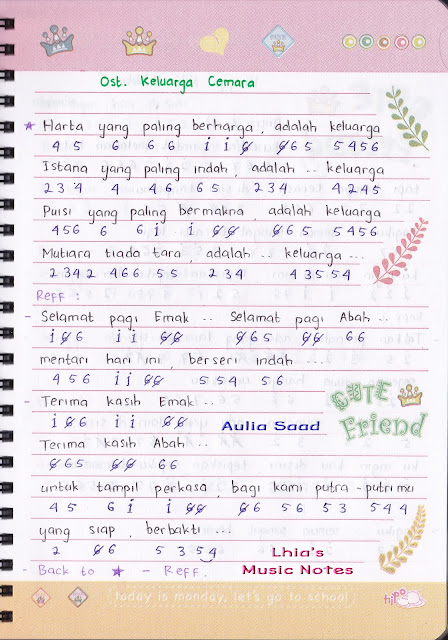 Ost. Keluarga Cemara
★ Harta yang paling berharga, adalah keluarga
4 5 6 6 6 i i 6̸ 6̸ 6 5 5 4 5 6
Istana yang paling indah, adalah .. keluarga
2 3 4 4 4 6 6 5 2 3 4 4 2 4 5
Puisi yang paling bermakna, adalah keluarga
4 5 6 6 6 i i 6̸ 6̸ 6̸ 6 5 5 4 5 6
Mutiara tiada tara, adalah .. keluarga ...
2 3 4 2 4 6 6 5 5 2 3 4 4 3 5 5 4
Reff :
- Selamat pagi Emak .. Selamat pagi Abah ..
i 6̸ 6 i i 6̸ 6̸ 6̸ 6 5 6̸ 6̸ 6 6
mentari hari ini, berseri indah ....
4 5 6 i i 6̸ 6̸ 5 5 4 5 6
CUTE
Friend
- Terima kasih Emak ..
i 6̸ 6 i i 6̸ 6̸
Aulia Saad
Terima kasih Abah ..
6̸ 6 5 6̸ 6̸ 6 6
untuk tampil perkasa, bagi kami putra - putri mu
4 5 6 i i 6̸ 6̸ 6̸ 6 5 6 5 3 5 4 4
yang siap, berbakti ....
2 6̸ 6 5 3 5 4
- Back to ★ - Reff.
Lhia's
Music Notes
today is monday, let's go to school
hipo